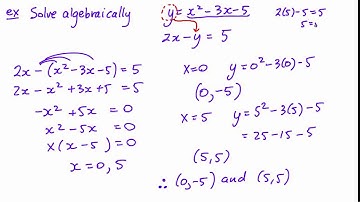 ex Solve algebraically
y = x² - 3x - 5
2x - y = 5
2(5) - 5 = 5
5 = 5
2x - (x² - 3x - 5) = 5
2x - x² + 3x + 5 = 5
-x² + 5x = 0
x² - 5x = 0
x(x - 5) = 0
x = 0, 5
x = 0 y = 0² - 3(0) - 5
(0, -5)
x = 5 y = 5² - 3(5) - 5
= 25 - 15 - 5
(5, 5)
∴ (0, -5) and (5, 5)